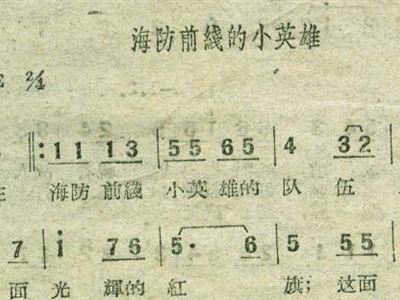 海防前綫的小英雄
2/4
‖: 1 1 1 3 | 5 5 6 5 | 4 3 2 |
海防 前綫 小英 雄的 队 伍
7 | i 7 6 | 5· 6 | 5 5 5 |
面 光 輝的 紅 旗; 这面